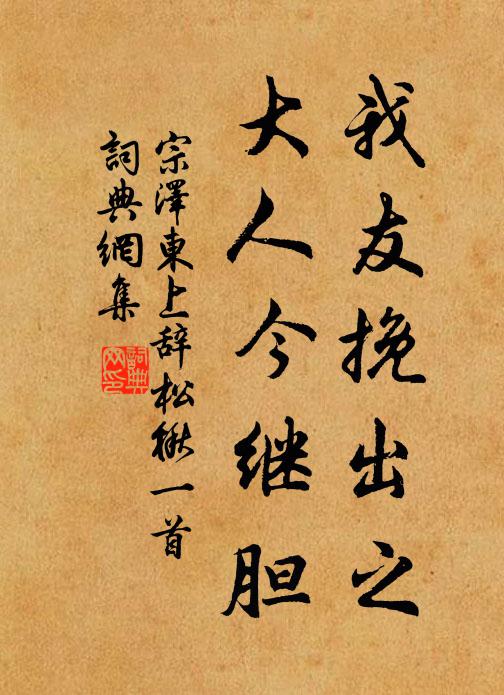 我友挽出之
大人今继胆
宗澤東上辞松楸一首
詞典網集
詞典
网印